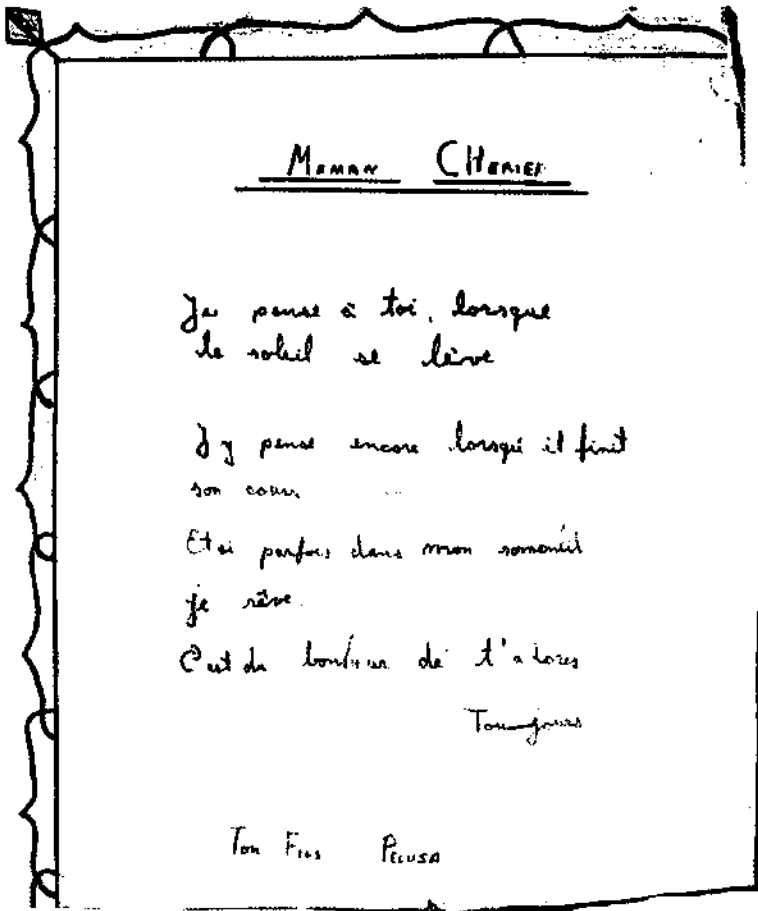 MAMAN CHERIEE
Je pense à toi, lorsque
le soleil se lève
J y pense encore lorsqu'il finit
son cour.
Et si parfois dans mon someil
je rêve.
C'est du bonheur de t'adores
Toujours
Ton Fils